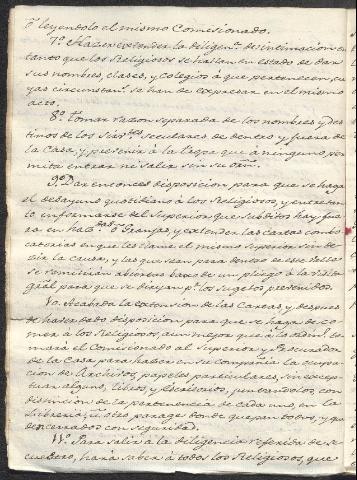 ò leyendolo el mismo Comisionado.
7.º Hacer extender la diligen.ª de intimacion en
tanto que los Religiosos se hallan en estado de dar
sus nombres, clases, y Colegios à que pertenecen, cu
yas circunstan.s se han de expresar en el mismo
acto.
8.º Tomar razon separada de los nombres y des
tinos de los seculares de dentro y fuera de
la Casa, y prevenir à la tropa que à ninguno per
mita entrar ni salir sin su orn.
9.º Dar entonces disposicion para que se haga
el desayuno quotidiano à los Religiosos, y entretan
to informarse del Superior que subditos hay fue
ra en ò Granjas, y extender las cartas combo
catorias en que les llame el mismo Superior sin de
cir la causa, y las que sean para dentro de este
se remitirán abiertas baxo de un pliego à la
para que se dirijan p.r los sugetos prevenidos.
10. Acabada la extension de las Cartas y despues
de haber dado disposicion para que se haga de co
mer à los Religiosos, aun mejor que à lo to
mará el Comisionado al Superior y Procurador
de la Casa para hacer en su compañia la ocupa
cion de Archivos, papeles particulares, sin excep
tuar alguno, Libros, y Escritorios, juntandolos, con
distincion de la pertenencia de cada uno, en la
Libreria, ù otro parage donde quepan todos, y que
den cerrados con seguridad.
11.º Para salir à la diligencia referida de se
cuestro, hará saber à todos los Religiosos, que